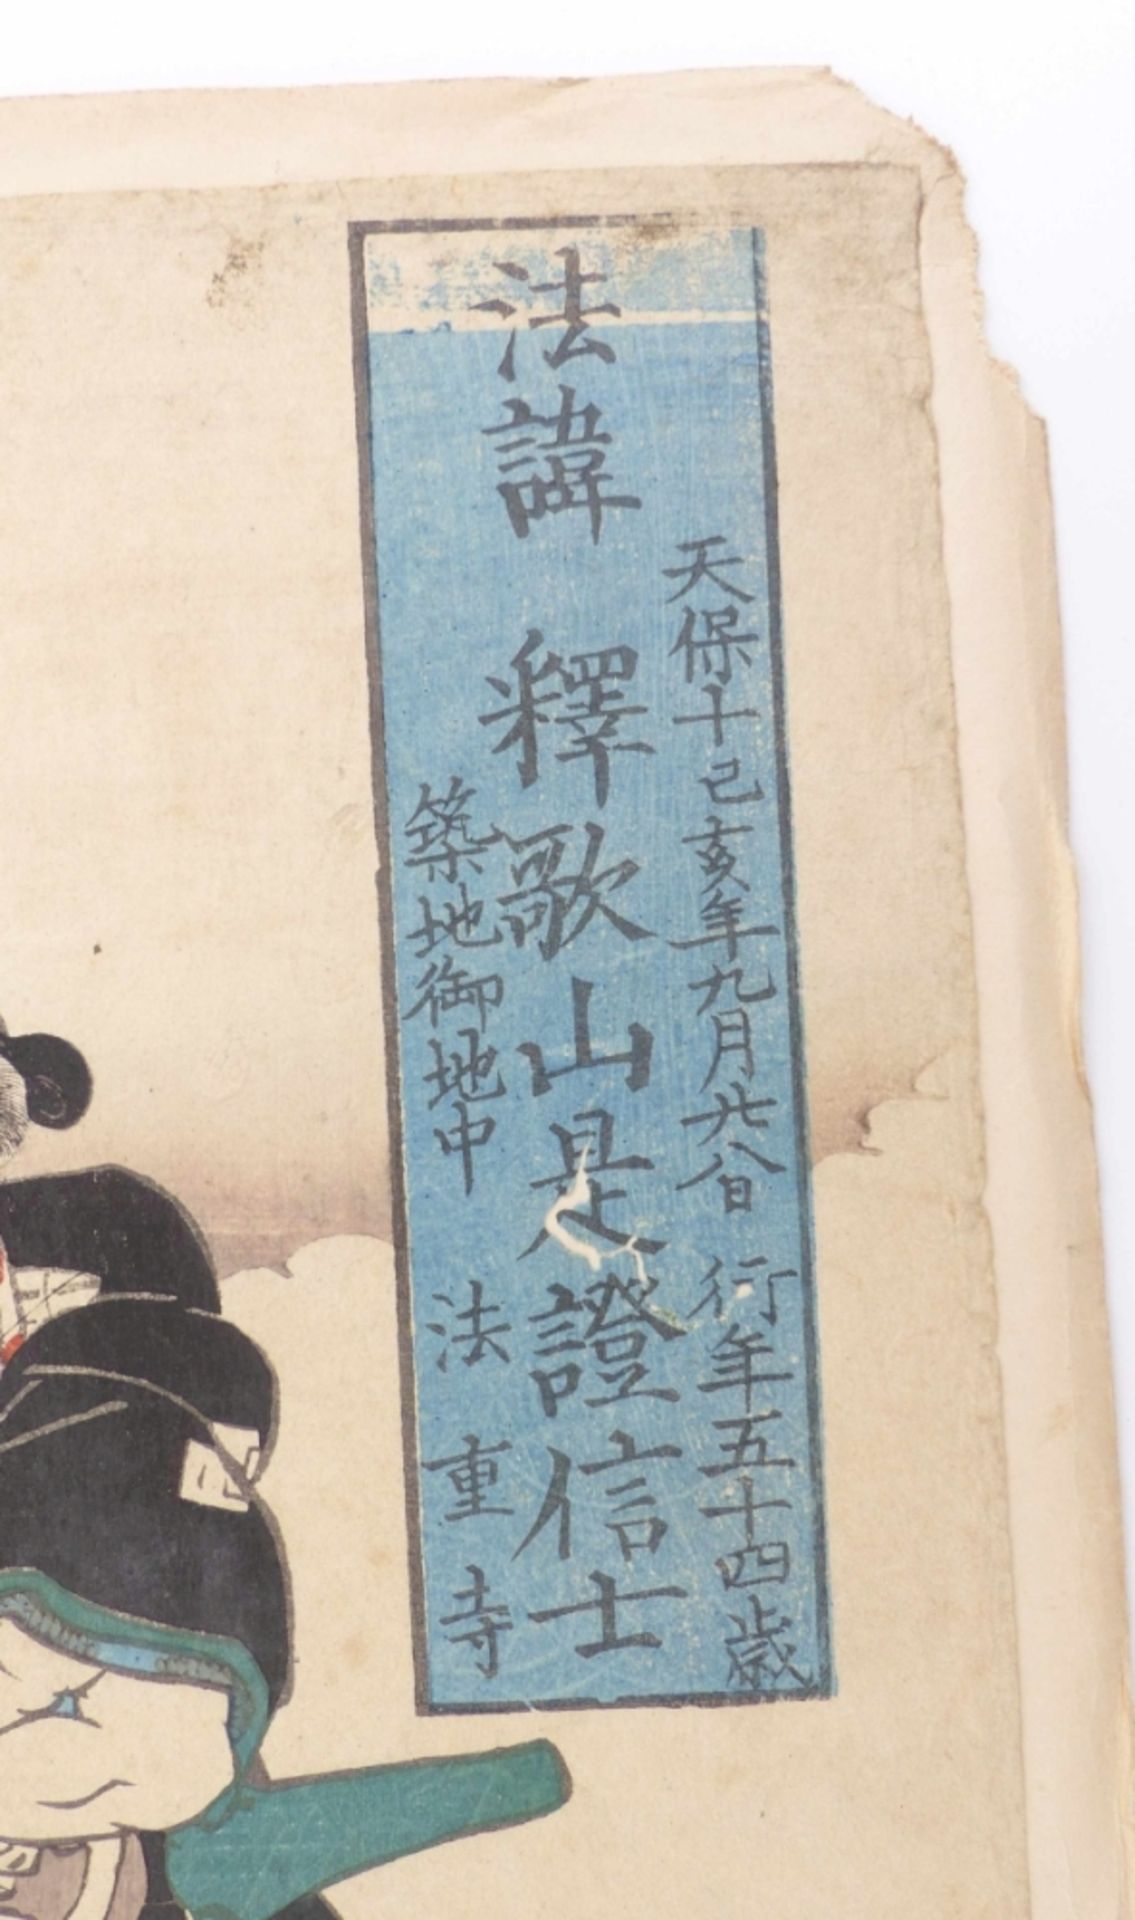 天保十己亥年九月廿八日 行年五十四歳
法諱 釋歌山是證信士
築地御地中 法重寺